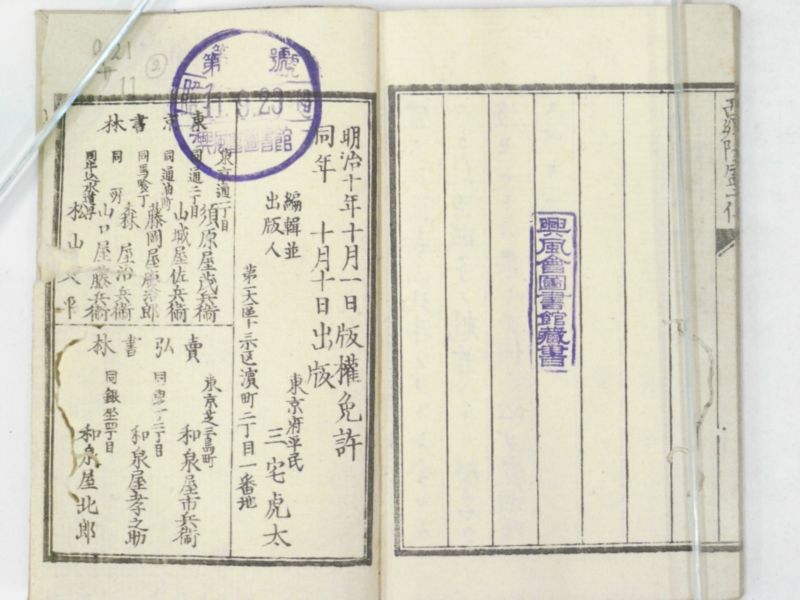 興風會圖書館藏書
明治十年十月一日版權免許
同年 十月十日出版
編輯並
出版人
東京府平民
三宅虎太
第一大區十三小区濱町二丁目一番地
東京書林
東京通一丁目
須原屋茂兵衛
同通二丁目
山城屋佐兵衛
同通油町
藤岡屋慶治郎
同馬喰丁
森屋治兵衛
同所
山口屋藤兵衛
松山
平
賣弘書林
東京芝三島町
和泉屋市兵衛
和泉屋孝之助
同銀坐四丁目
和泉屋北郎
第 號
昭11.9.20
興風會圖書館
21
11
2